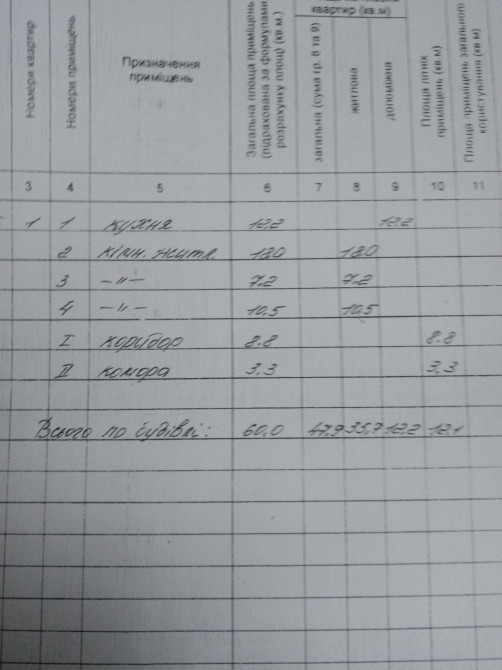 квартир (кв.м)
Номери квартир
Номери приміщень
Призначення
приміщень
Загальна площа приміщень
(підрахована за формулами
розрахунку площ) (кв.м.)
загальна (сума гр. 8 та 9)
житлова
допоміжна
Площа літніх
приміщень (кв.м)
Площа приміщень загального
користування (кв.м)
3 4 5 6 7 8 9 10 11
1 1 кухня 12.2 12.2
2 кімн. житл. 18.0 18.0
3 —"— 7.2 7.2
4 —"— 10.5 10.5
I коридор 8.8 8.8
II комора 3.3 3.3
Всього по будівлі: 60.0 47,9 35,7 12,2 12.1